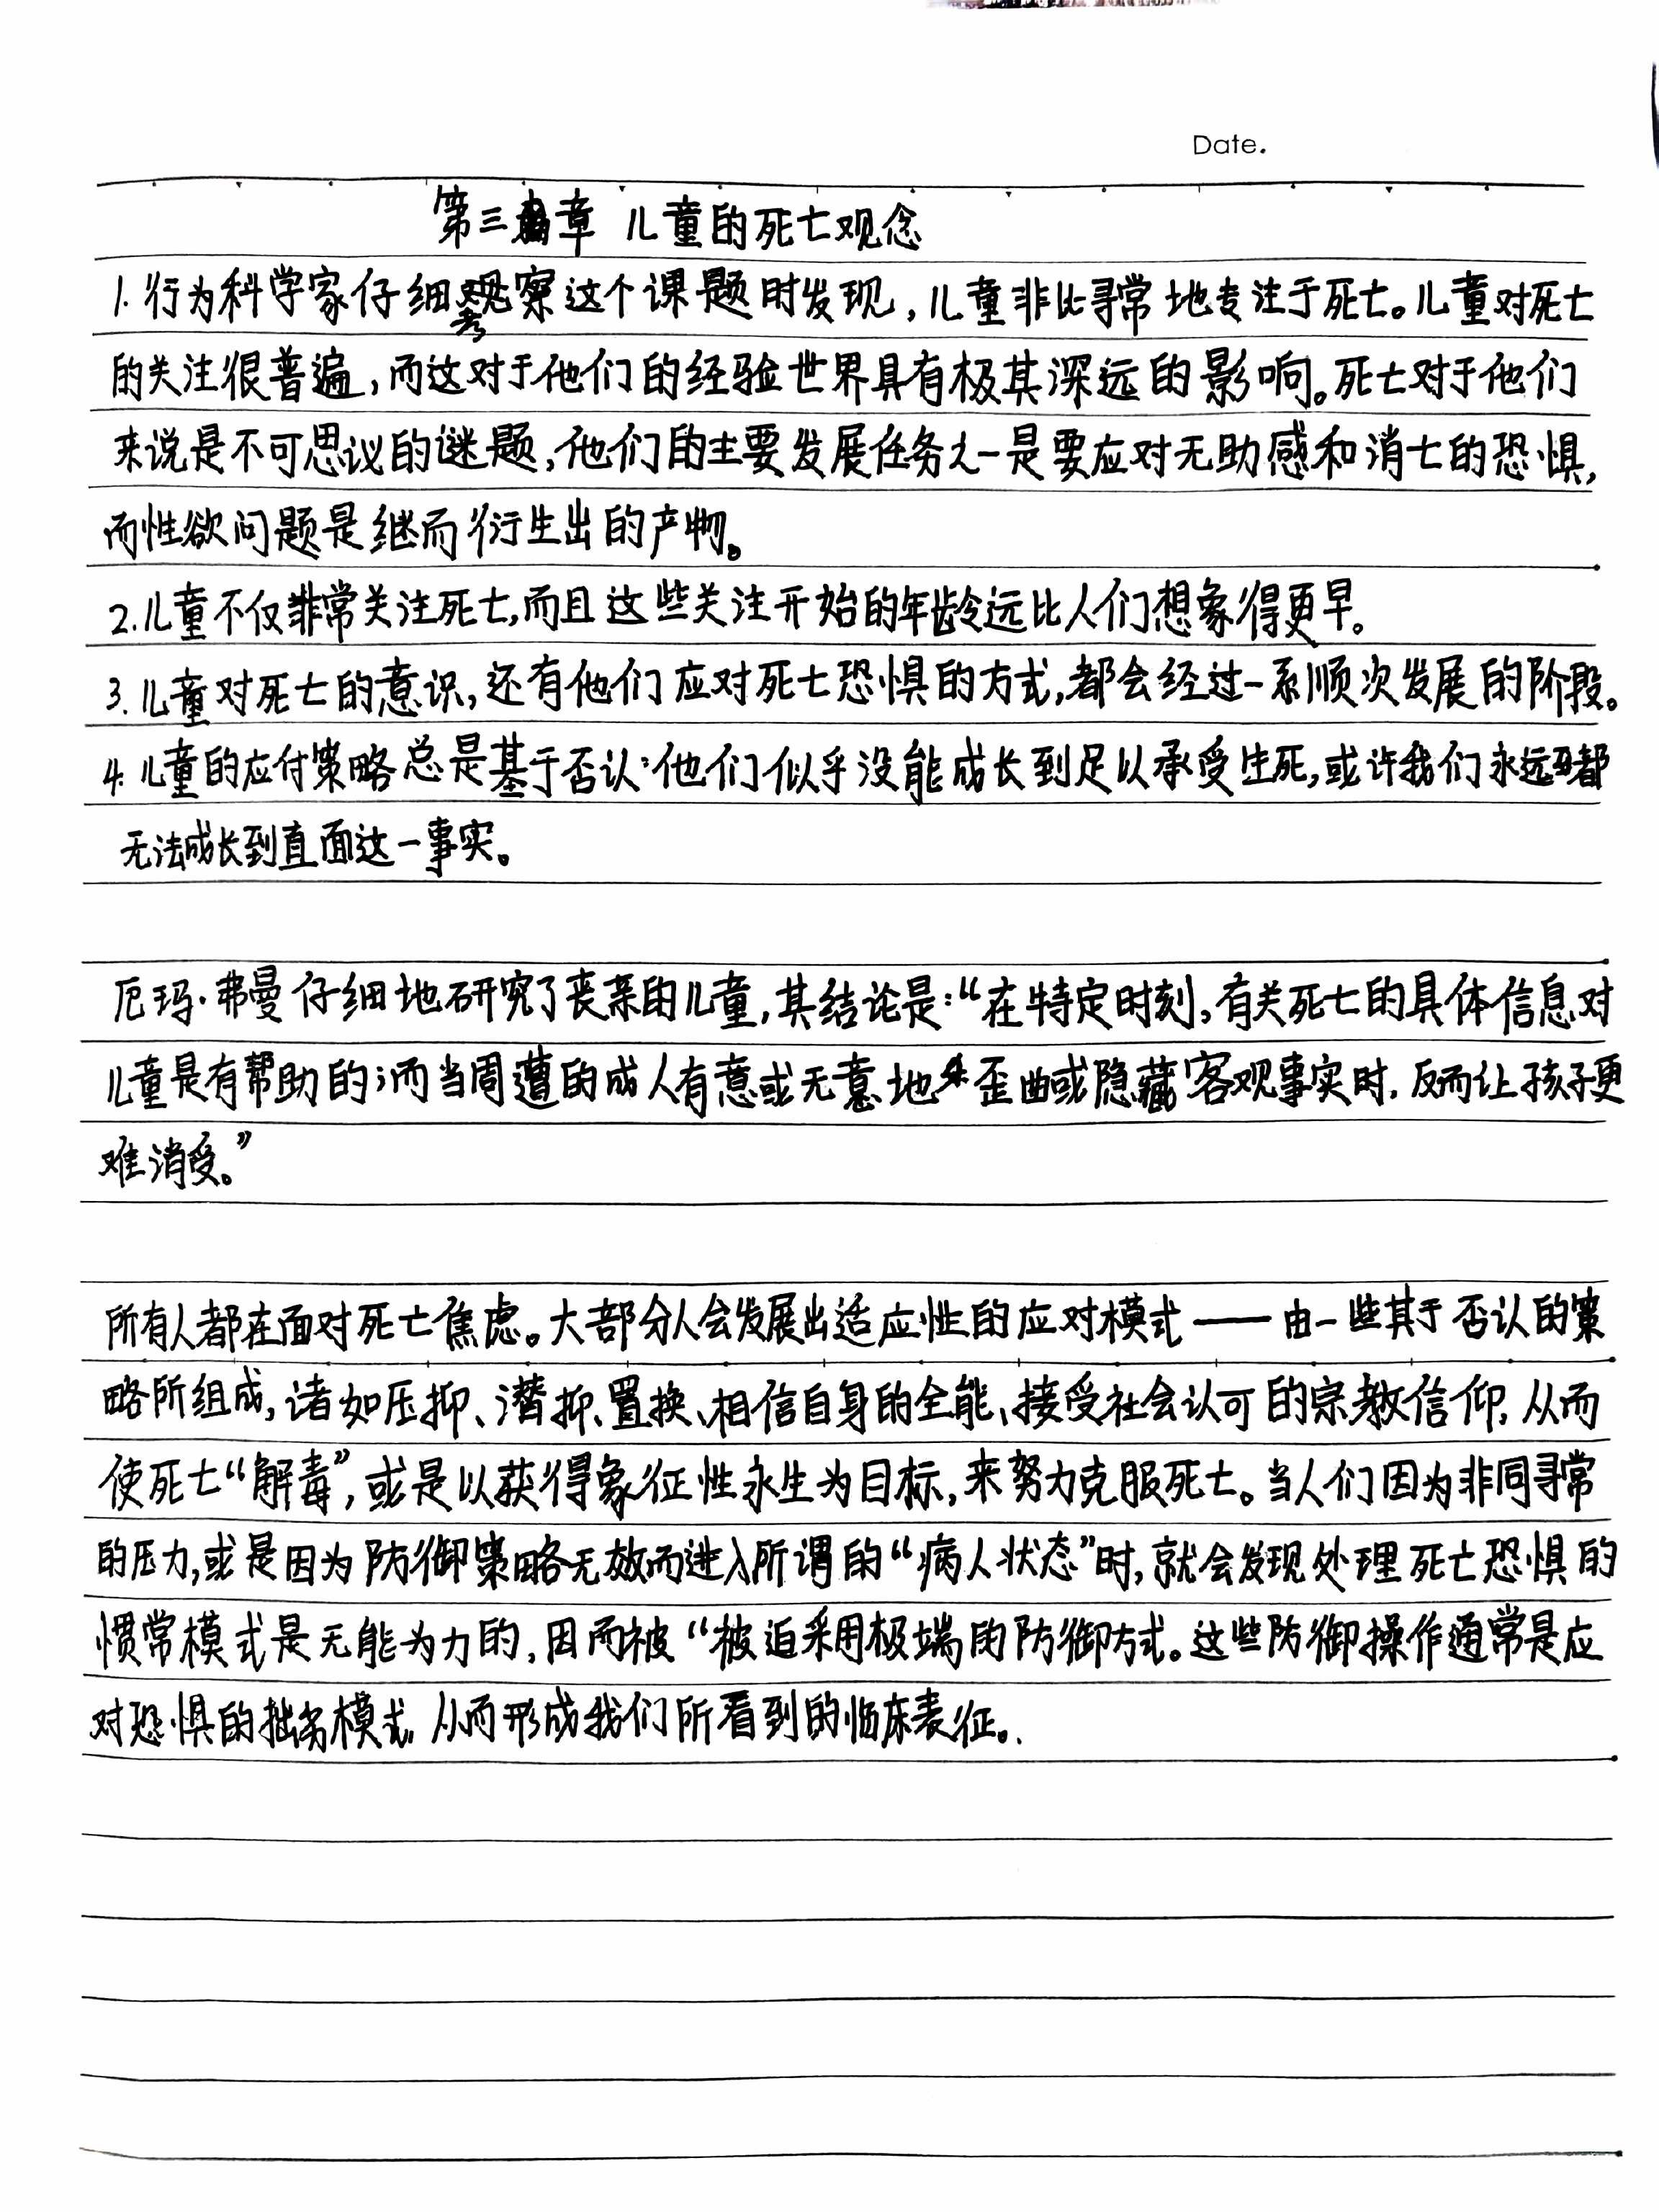 Date.
第三章 儿童的死亡观念
1. 行为科学家仔细考察这个课题时发现，儿童非比寻常地专注于死亡。儿童对死亡
的关注很普遍，而这对于他们的经验世界具有极其深远的影响。死亡对于他们
来说是不可思议的谜题，他们的主要发展任务之一是要应对无助感和消亡的恐惧，
而性欲问题是继而衍生出的产物。
2. 儿童不仅非常关注死亡，而且这些关注开始的年龄远比人们想象得更早。
3. 儿童对死亡的意识，还有他们应对死亡恐惧的方式，都会经过一系顺次发展的阶段。
4. 儿童的应付策略总是基于否认：他们似乎没能成长到足以承受生死，或许我们永远都
无法成长到直面这一事实。
厄玛·弗曼仔细地研究了丧亲的儿童，其结论是：“在特定时刻，有关死亡的具体信息对
儿童是有帮助的；而当周遭的成人有意或无意地歪曲或隐藏客观事实时，反而让孩子更
难消受。”
所有人都在面对死亡焦虑。大部分人会发展出适应性的应对模式——由一些其于否认的策
略所组成，诸如压抑、潜抑、置换、相信自身的全能、接受社会认可的宗教信仰，从而
使死亡“解毒”，或是以获得象征性永生为目标，来努力克服死亡。当人们因为非同寻常
的压力，或是因为防御策略无效而进入所谓的“病人状态”时，就会发现处理死亡恐惧的
惯常模式是无能为力的，因而被“被迫采用极端的防御方式。这些防御操作通常是应
对恐惧的拙劣模式，从而形成我们所看到的临床表征。